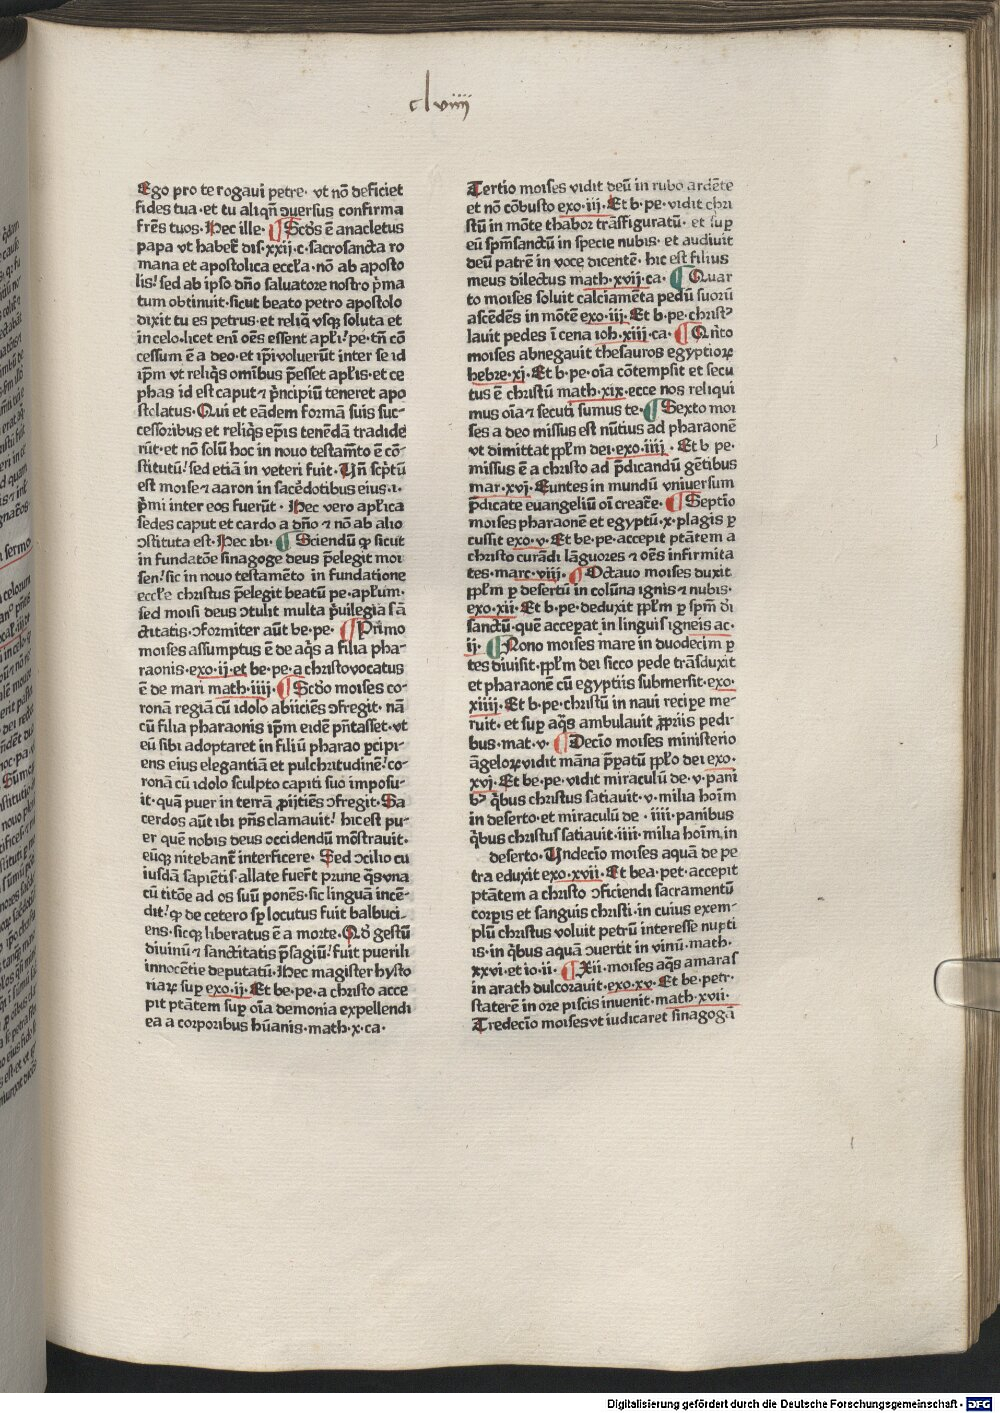 clviiij
Ego pro te rogaui petre· vt nō deficiet
fides tua·et tu aliqñ ꝯuersus confirma
frēs tuos·Hec ille· ¶ Scd̄s ē anacletus
papa vt habet̄ dis·xxij·c·sacrosancta ro
mana et apostolica eccl̄a·nō ab aposto
lis! sed ab ipso dn̄o saluatore nostro p̄ma
tum obtinuit·sicut beato petro apostolo
dixit tu es petrus·et reliq̄ vsqꝫ soluta et
in celo·licet eni oēs essent apl̄i!·pe·tn̄ cō
cessum ē a deo·et ip̄i voluerūt inter se id
ip̄m vt reliqs̄ omībus p̄esset apl̄is·et ce
phas id est caput ⁊ p̄ncipiū teneret apo
stolatus·Qui et eādem formā suis suc-
cessoribus et reliqs̄ ep̄is tenēdā tradide
rūt·et nō solū hoc in nouo testam̄to ē cō-
stitutū! sed etiā in veteri fuit·Vn̄ sc̄ptū
est moise ⁊ aaron in sac̄edotibus eius·ı·
p̄mi inter eos fuerūt· Hec vero apl̄ica
sedes caput et cardo a dn̄o ⁊ nō ab alio
ꝯstituta est·Hec ibi· ¶ Sciendū ꝙ sicut
in fundatōe sinagoge deus p̄elegit moi
sen! sic in nouo testamēto in fundatione
eccl̄e christus p̄elegit beatū pe·apl̄um·
sed moisi deus ꝯtulit multa p̄uilegia sā
ctitatis·ꝯformiter aūt be·pe· ¶ Primo
moises assumptus ē de aq̄s a filia pha-
raonis·exo·ij·et be·pe·a christo vocatus
ē de mari math·iiij· ¶ Scd̄o moises co-
ronā regiā cū idolo abiiciēs ꝯfregit· nā
cū filia pharaonis ip̄m eidē pn̄tasset·vt
eū sibi adoptaret in filiū pharao ꝑcipi-
ens eius elegantiā et pulchritudinē! co-
ronā cū idolo sculpto capiti suo imposu-
it·quā puer in terrā ꝓijtiēs ꝯfregit·Sa
cerdos aūt ibi pn̄s clamauit! hic est pu-
er quē nobis deus occidendū mōstrauit·
eūqꝫ nitebant̄ interficere· Sed ꝯcilio cu
iusdā sapiētis allate fuer̄t prune q̄s vna
cū titōe ad os suū ponēs·sic linguā incē-
dit! ꝙ de cetero sꝑ locutus fuit balbuci-
ens·sicqꝫ liberatus ē a morte·Qd̄ gestū
diuinū ⁊ sanctitatis p̄sagiū! fuit puerili
innocētie deputatū·Hec magister hysto
riaꝝ suꝑ exo·ij·Et be·pe·a christo acce
pit ptātem suꝑ oīa demonia expellendi
ea a corporibus hūanis·math·x·ca·
Tertio moises vidit deū in rubo ardēte
et nō cōbusto exo·iij·Et b·pe·vidit chri
stū in mōte thabor trāsfiguratū· et suꝑ
eū spm̄sanctū in specie nubis·et audiuit
deū patrē in voce dicentē·hic est filius
meus dilectus math·xvij·ca· ¶ Quar
to moises soluit calciamēta pedū suorū
ascēdēs in mōtē exo·iij·Et b·pe·christꝰ
lauit pedes ī cena ioh·xiij·ca· ¶ Qn̄to
moises abnegauit thesauros egyptioꝝ
hebre·xj·Et b·pe·oīa cōtempsit et secu
tus ē christū math·xix·ecce nos reliqui
mus oīa ⁊ secuti sumus te· ¶ Sexto moi
ses a deo missus est nūtius ad pharaonē
vt dimittat ppl̄m dei·exo·iiij· ·Et b pe·
missus ē a christo ad p̄dicandū gētibus
mar·xvj·Euntes in mundū vniuersum
p̄dicate euangeliū oī creat̄e· ¶ Septīo
moises pharaonē et egyptū·x·plagis ꝑ
cussit exo·v·Et be·pe·accepit ptātem a
christo curādi lāguores ⁊ oēs infirmita
tes·marc·viij· ¶ Octauo moises duxit
ppl̄m ꝑ desertū in colūna ignis ⁊ nubis·
exo·xij·Et b·pe·deduxit ppl̄m ꝑ spm̄ di
sanctū·quē acceꝑat in linguis igneis ac·
ij· ¶ Nono moises mare in duodecim ꝑ
tes diuisit·ppl̄m dei sicco pede trāsduxit
et pharaonē cū egyptiis submersit·exo·
xiiij·Et b·pe·christū in naui recipe me-
ruit·et suꝑ aq̄s ambulauit ꝓpriis pedi
bus·mat·v· ¶ Decīo moises ministerio
āgeloꝝ vidit māna p̄ꝑatū ppl̄o dei exo·
xvj·Et be·pe·vidit miraculū de·v·pani
bꝰ q̄bus christus satiauit·v·milia hoīm
in deserto·et miraculū de · iiij·panibus
q̄bus christus satiauit·iiij·milia hoīm, in
deserto·Vndecīo moises aquā de pe
tra eduxit exo·xvij·Et bea·pet·accepit
ptātem a christo ꝯficiendi sacramentū
corꝑis et sanguis christi·in cuius exem-
plū christus voluit petrū interesse nupti
is·in q̄bus aquā ꝯuertit in vinū·math·
xxvi·et io·ii· ¶ Xii·moises aq̄s amaras
in arath dulcorauit·exo·xv·Et be·petr·
staterē in ore piscis inuenit·math·xvii·
Tredecīo moises vt iudicaret sinagogā
Digitalisierung gefördert durch die Deutsche Forschungsgemeinschaft - DFG